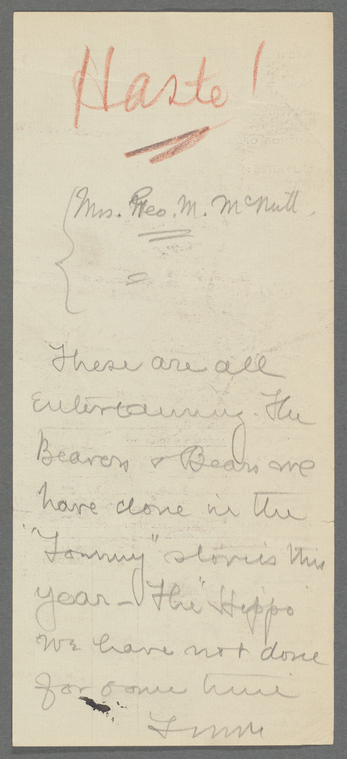 Haste!
Mrs. Geo. M. McNutt.
These are all
Entertaining. The
Bears we
have done in the
"Tommy" stories this
year - The "Hippo
we have not done
for some time